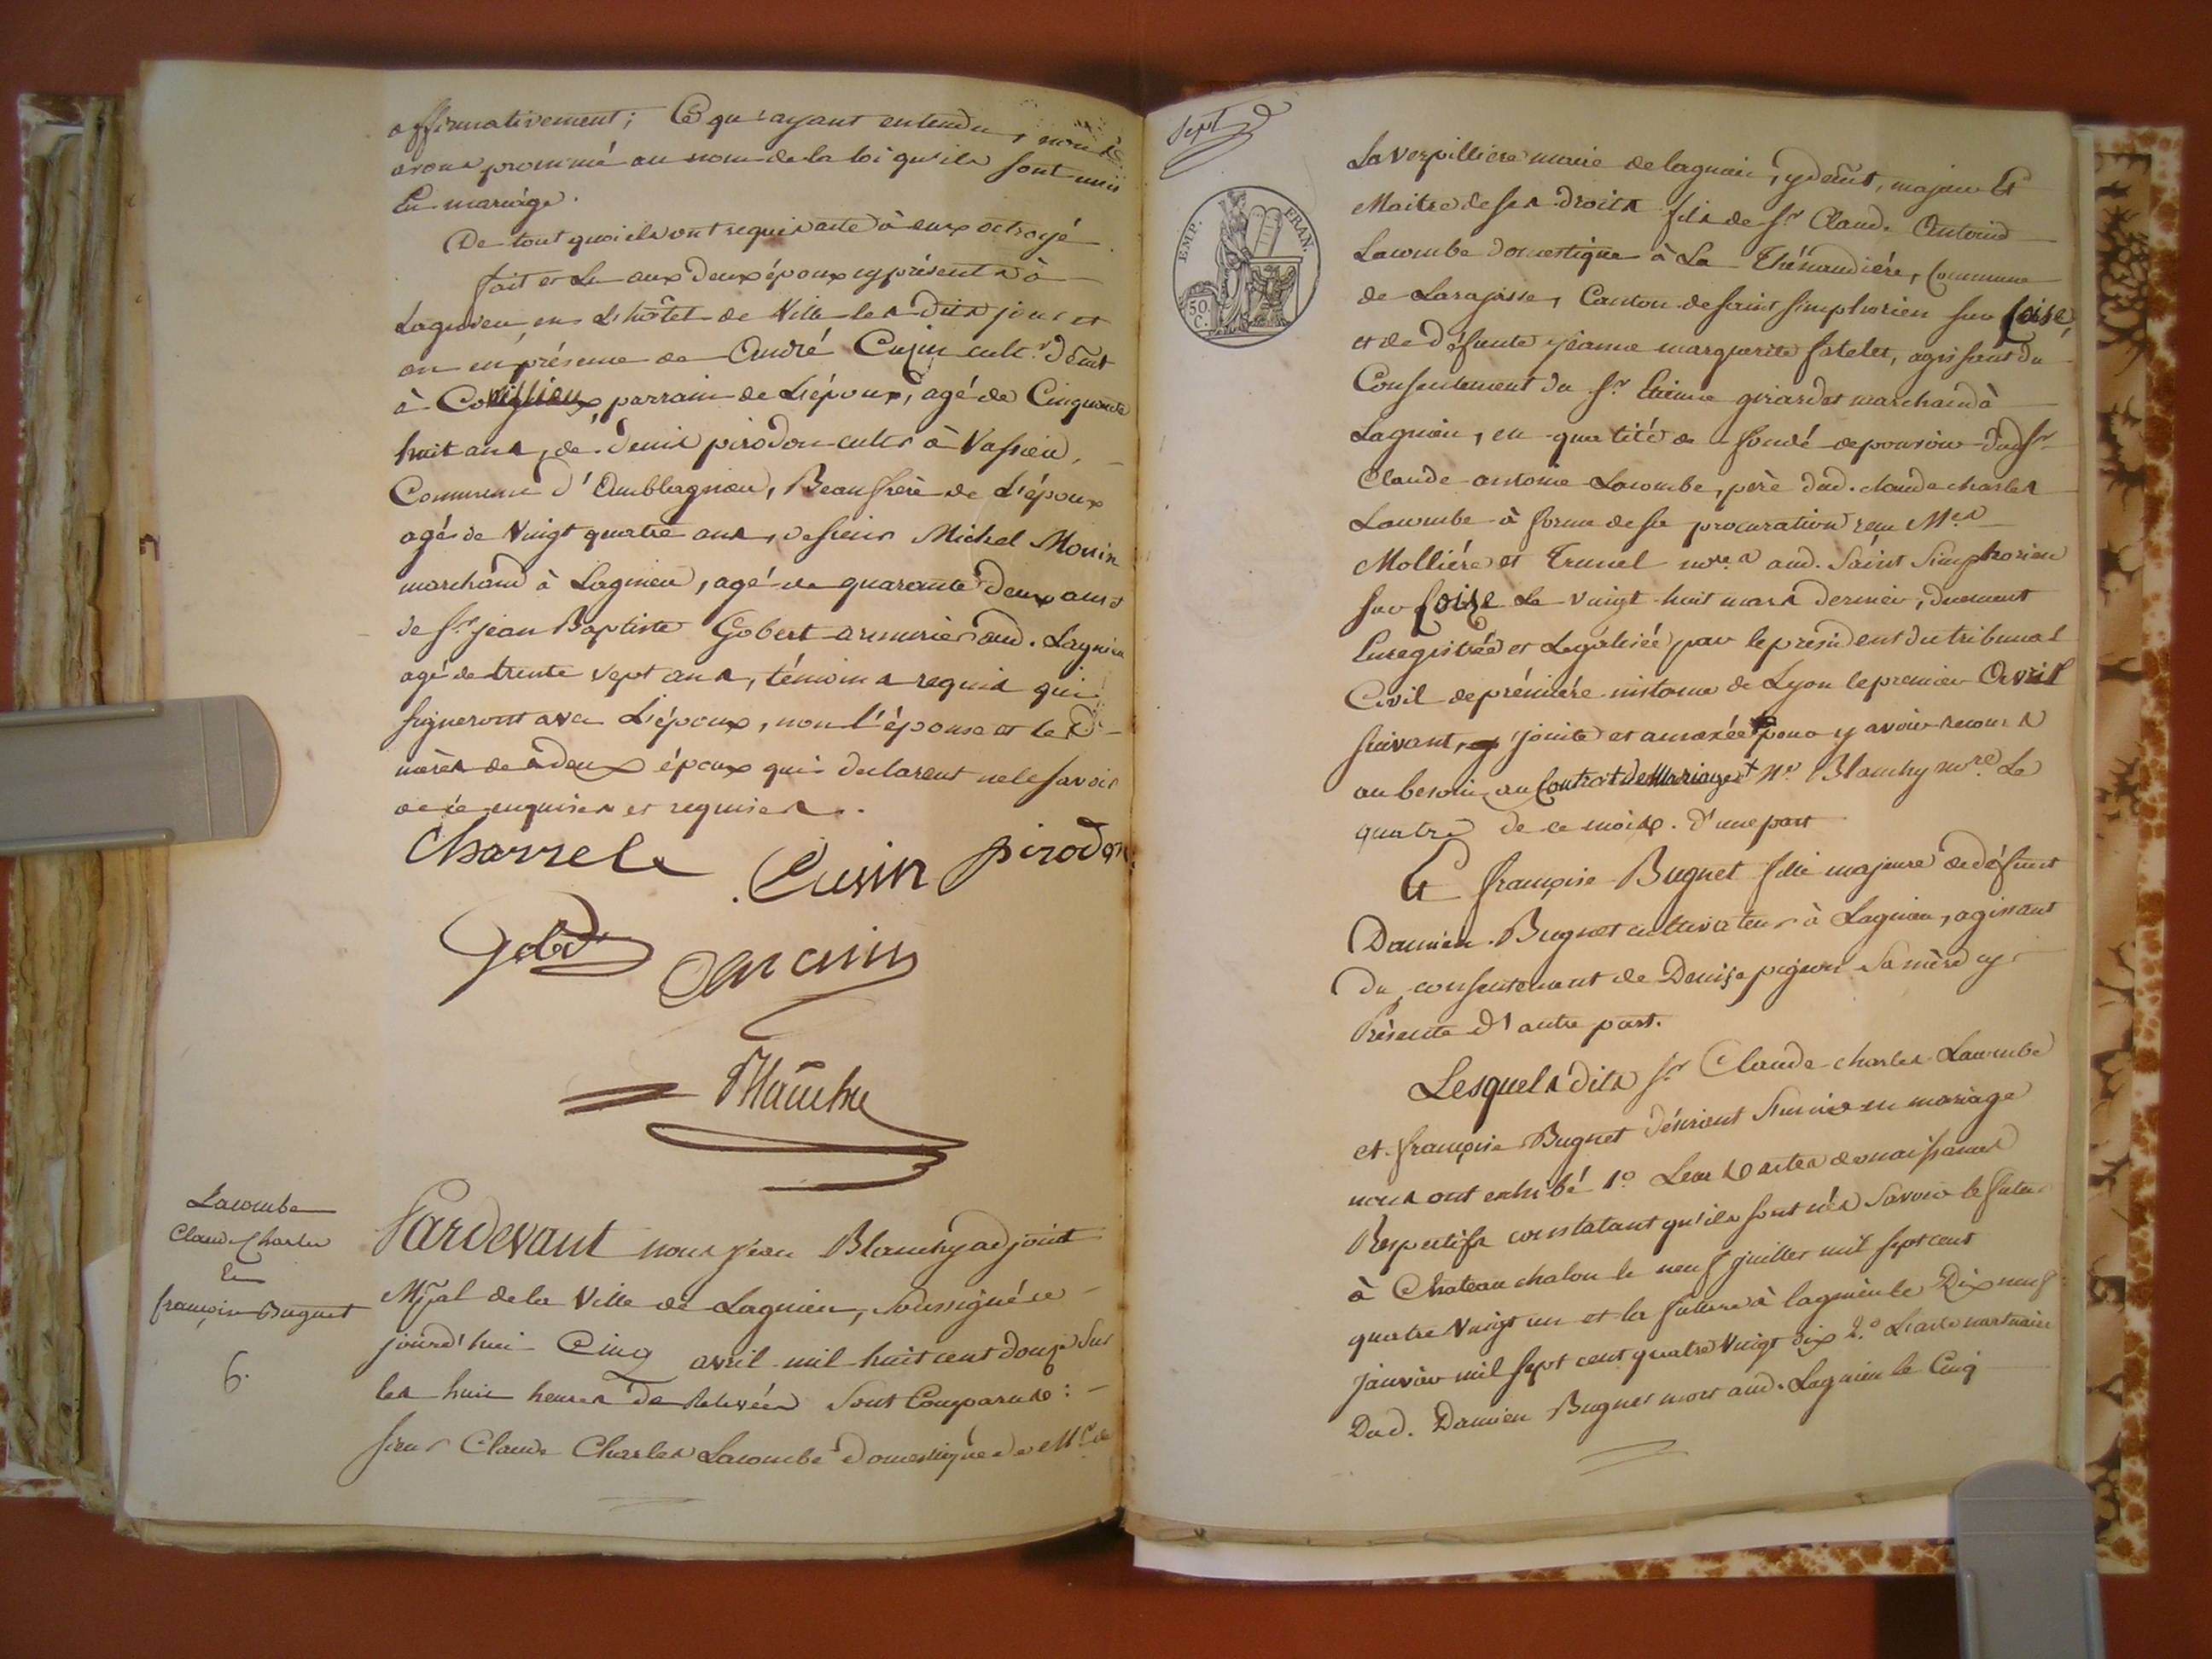 affirmativement; Ce qu'ayant entendu, nous
avons prononcé au nom de la loi qu'ils sont unis
En mariage.
De tout quoi ils ont requis acte à eux octroyé.
fait et Lu aux deux époux cy présents à
Lagnieu, en L'hôtel de Ville les dits jour et
an en présence de André Cujin cult.r d.eurt
à parrain de L'époux, agé de Cinquante
huit ans, de Denis pirodon cult.r à Vassieu,
Commune d'Amblagnieu, Beaufrère de L'époux
agé de Vingt quatre ans, de sieur Michel Monin
marchand à Lagnieu, agé de quarante deux ans
de S.r jean Baptiste Gobert armurier aud. Lagnieu
agé de trente sept ans, témoins requis qui
signeront avec L'époux, non l'épouse et les
mères des deux époux qui declarent ne le savoir
de ce enquises et requises.
Charrel Cusin pirodon
Gobert
Blanchy
Lacombe
Claude Charles
Et
françoise Buguet
6.
Pardevant nous jean Blanchy adjoint
Mpal de la Ville de Lagnieu, soussigné ce
jourd'hui Cinq avril mil huit cent douze Sur
les huit heures de Relevée Sont Comparus :
sieur Claude Charles Lacombe domestique de M.r de
Sept
EMP. FRAN.
50 C.
La Verpilliere maire de lagnieu, y d.eurt, majeur Et
Maitre de ses droits fils de S.r Claud. Antoine
Lacombe domestique à La Thénaudière, Commune
de Larajasse, Canton de saint simphorien sur Coise,
et de défunte jeanne marguerite fatelet, agissant du
Consentement du S.r Etienne girardet marchand à
Lagnieu, en qualité de fondé de pouvoir dud. S.r
Claude antoine Lacombe, père dud. claude charles
Lacombe à forme de sa procuration reçu M.es
Mollière et Trunel no.res aud. Saint Simphorien
sur Coise Le vingt huit mars dernier, duement
Enregistrée et Légalisée par le président du tribunal
Civil de prémière instance de Lyon le premier Avril
suivant, jointe et annexée pour y avoir recours
au besoin, au Contrat de Mariage + M.e Blanchy no.re Le
quatre de ce mois. d'une part
Et françoise Buguet fille majeure de défunt
Damien Buguet cultivateur à Lagnieu, agissant
du consentement de Denise pigeon Sa mère cy
Présente d'autre part.
Lesquels dits S.r Claude charles Lacombe
et françoise Buguet désirant s'unir en mariage
nous ont exhibé 1.o Leurs actes de naissance
Respectifs constatant qu'ils sont nés Savoir le futur
à Chateau chalon le neuf juillet mil sept cent
quatre Vingt un et la future à lagnieu le Dix neuf
janvier mil sept cent quatre Vingt dix 2.o L'acte mortuaire
Dud. Damien Buguet mort aud. Lagnieu le Cinq